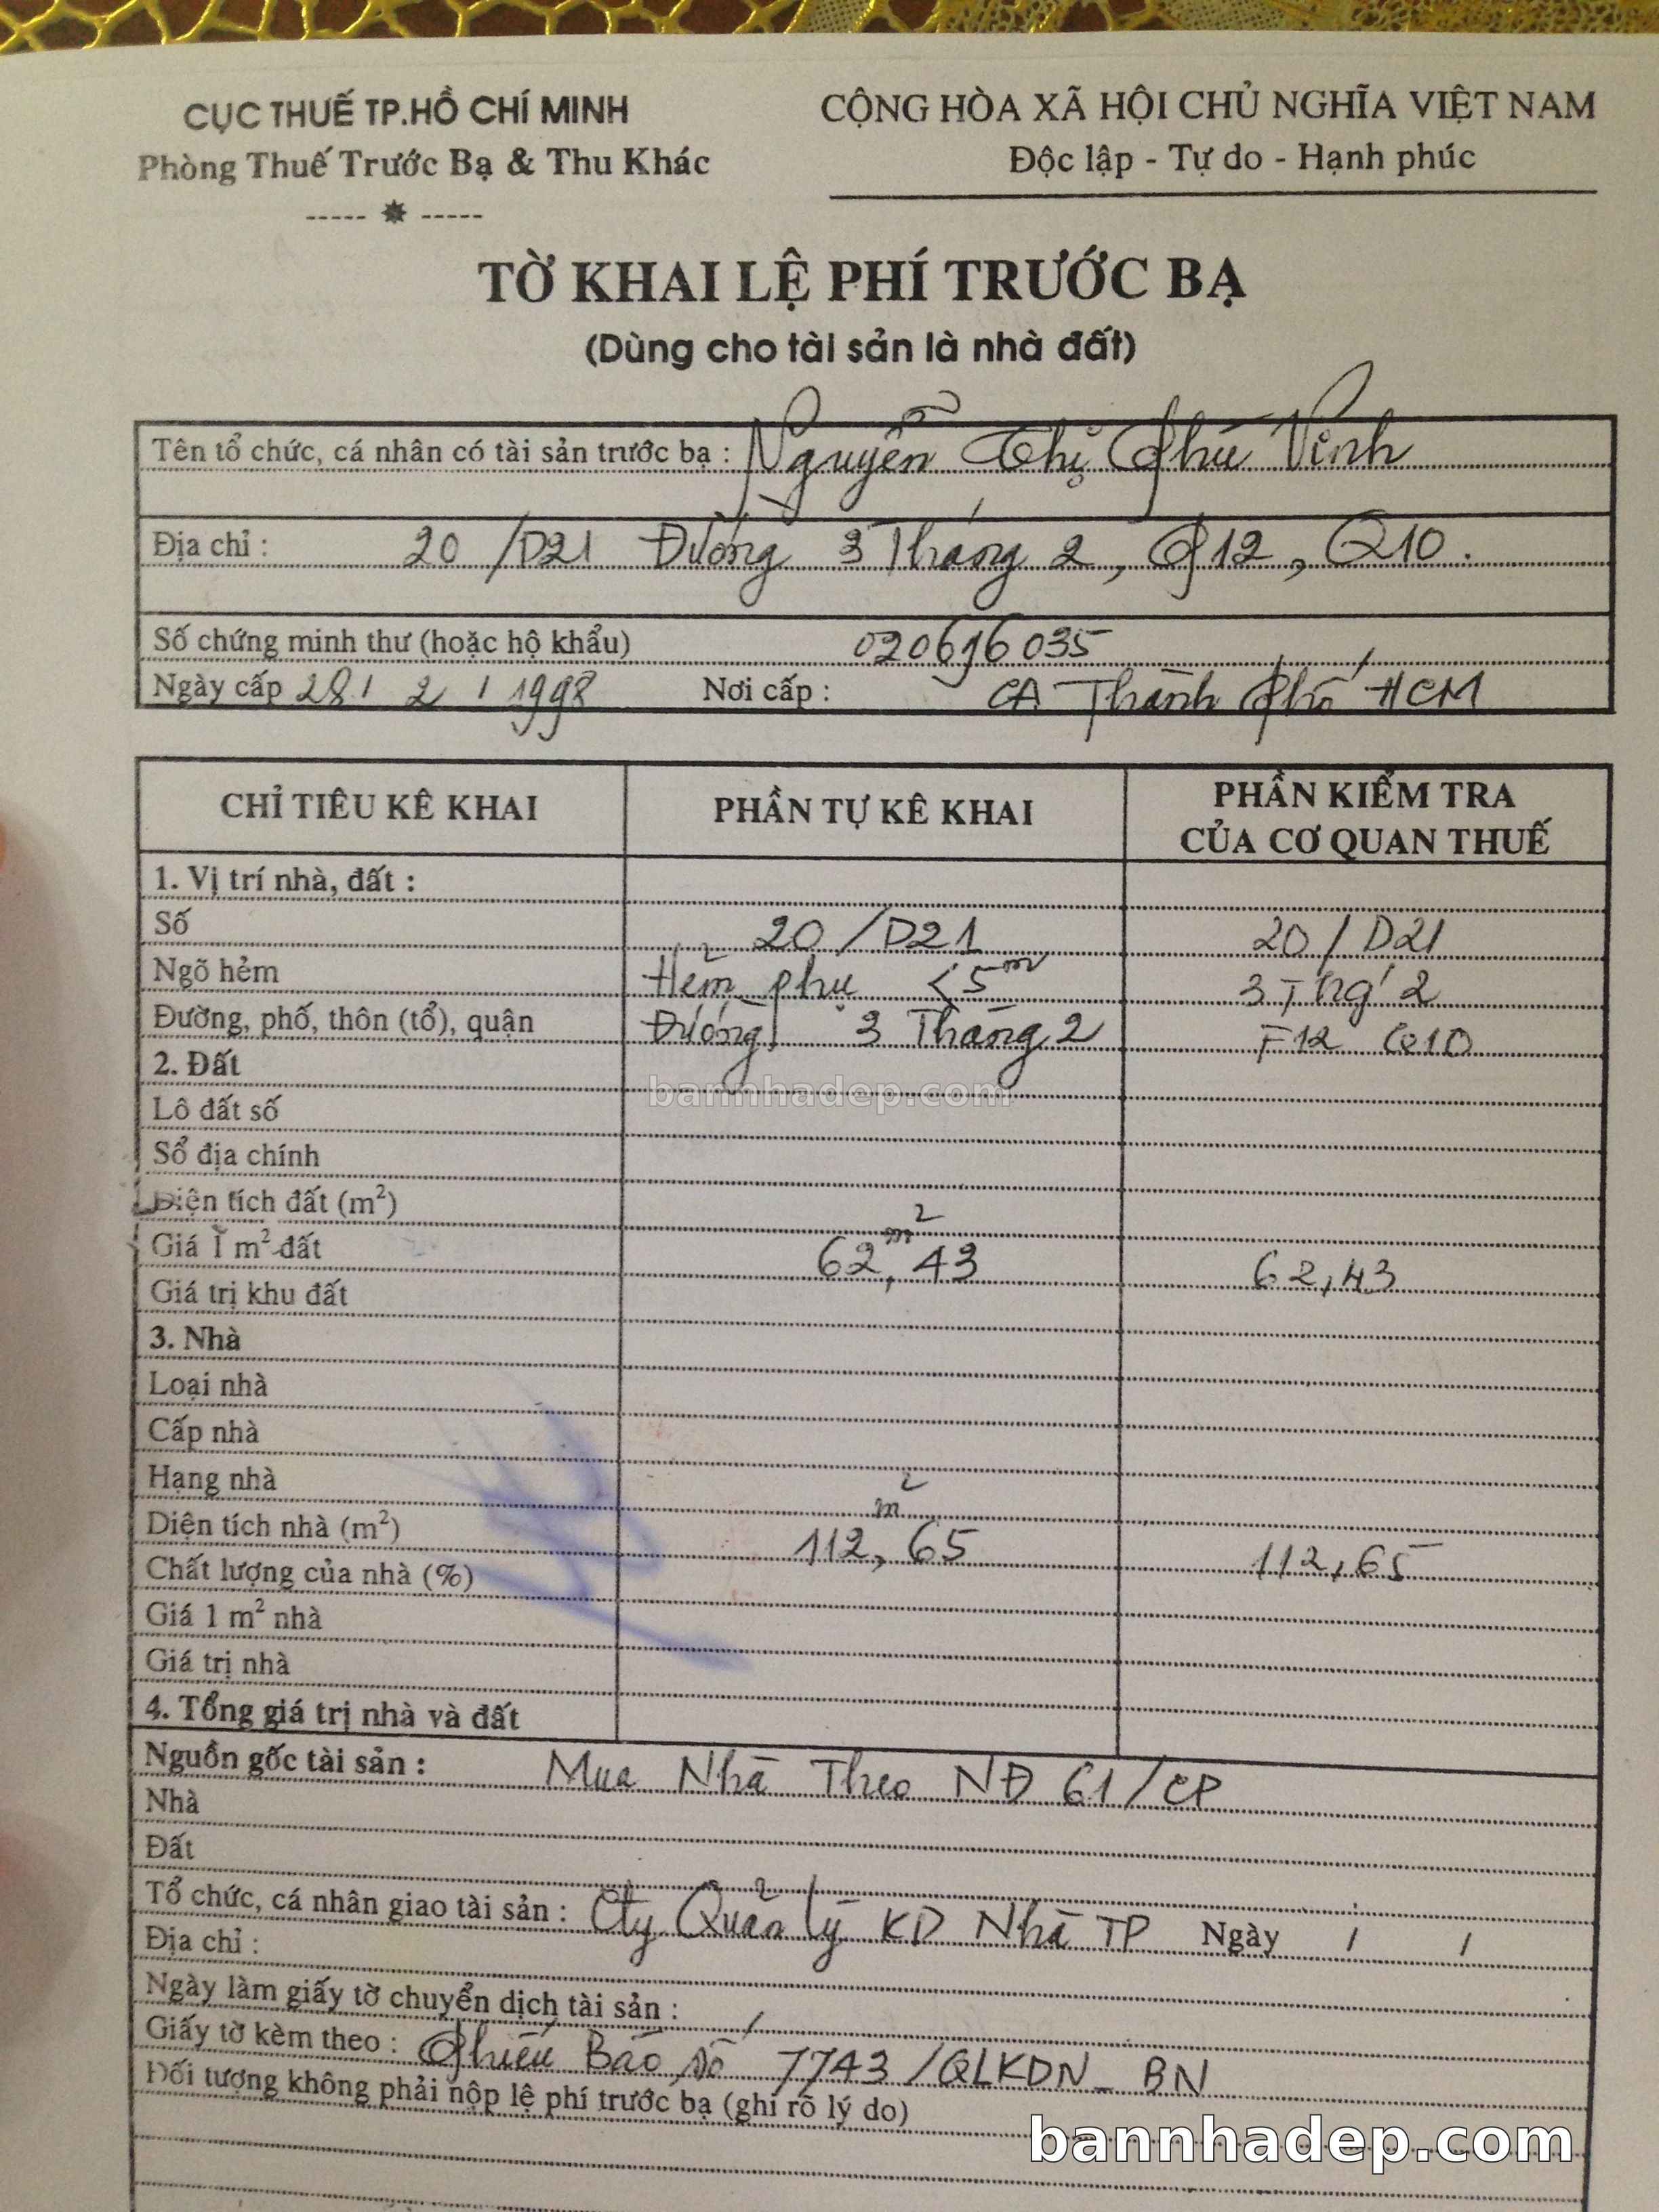 CỤC THUẾ TP.HỒ CHÍ MINH
Phòng Thuế Trước Bạ & Thu Khác
CỘNG HÒA XÃ HỘI CHỦ NGHĨA VIỆT NAM
Độc lập - Tự do - Hạnh phúc
TỜ KHAI LỆ PHÍ TRƯỚC BẠ
(Dùng cho tài sản là nhà đất)
Tên tổ chức, cá nhân có tài sản trước bạ : Nguyễn Thị Phú Vinh
Địa chỉ : 20 /D21 Đường 3 Tháng 2, P12, Q10.
Số chứng minh thư (hoặc hộ khẩu) 020616035
Ngày cấp 28 / 2 / 1998 Nơi cấp : CA Thành Phố HCM
CHỈ TIÊU KÊ KHAI PHẦN TỰ KÊ KHAI PHẦN KIỂM TRA CỦA CƠ QUAN THUẾ
1. Vị trí nhà, đất :
Số 20 /D21 20 / D21
Ngõ hẻm Hẻm phụ <5m 3 Thg' 2
Đường, phố, thôn (tổ), quận Đường 3 Tháng 2 F12 Q10
2. Đất
bannhadep.com
Lô đất số
Sổ địa chính
Diện tích đất (m²)
Giá 1 m² đất 62,m² 43 62,43
Giá trị khu đất
3. Nhà
Loại nhà
Cấp nhà
Hạng nhà
Diện tích nhà (m²) 112,m² 65 112,65
Chất lượng của nhà (%)
Giá 1 m² nhà
Giá trị nhà
4. Tổng giá trị nhà và đất
Nguồn gốc tài sản : Mua Nhà Theo NĐ 61/CP
Nhà
Đất
Tổ chức, cá nhân giao tài sản : Cty Quản lý KD Nhà TP Ngày / /
Địa chỉ :
Ngày làm giấy tờ chuyển dịch tài sản :
Giấy tờ kèm theo : Phiếu Báo số 7743/QLKDN_ BN
Đối tượng không phải nộp lệ phí trước bạ (ghi rõ lý do)
bannhadep.com